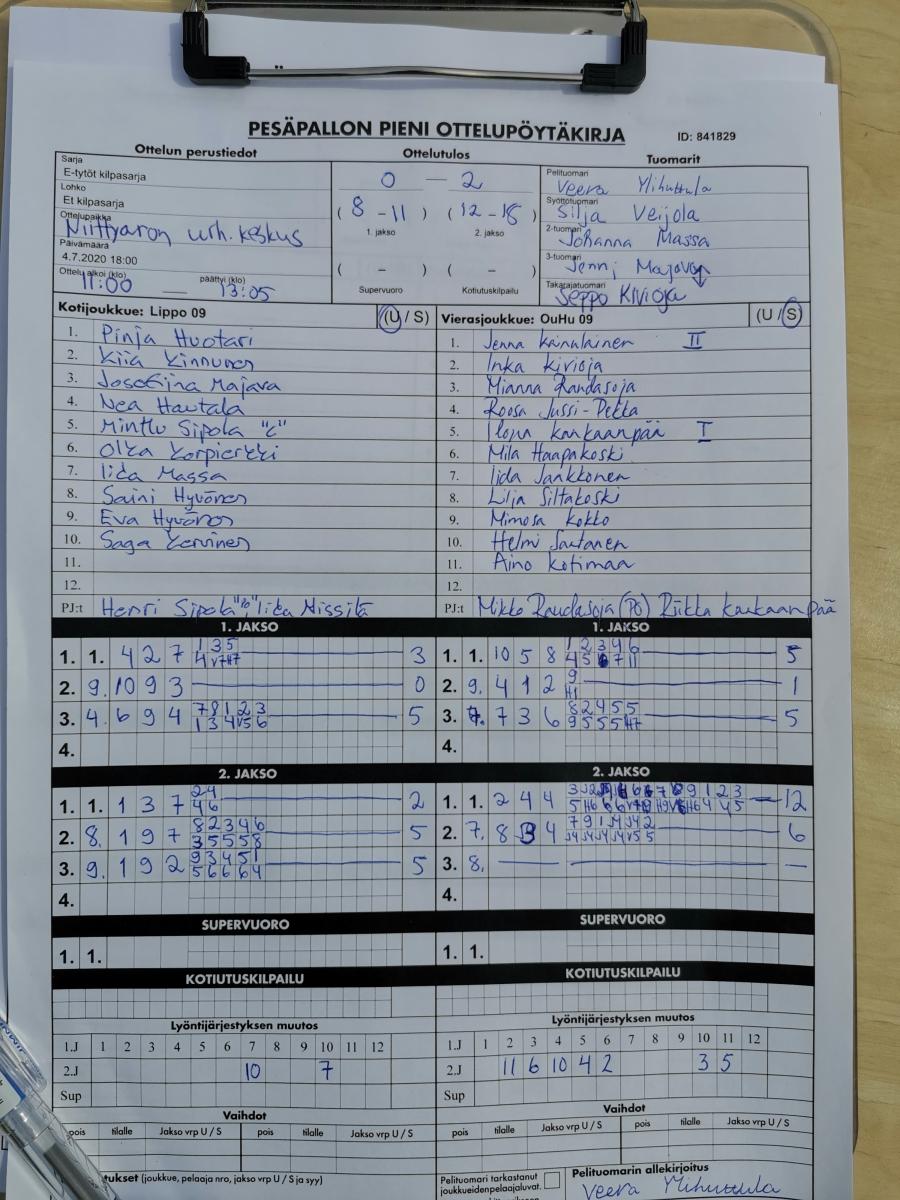 PESÄPALLON PIENI OTTELUPÖYTÄKIRJA ID: 841829
Ottelun perustiedot Ottelutulos Tuomarit
Sarja
E-tytöt kilpasarja
Lohko
Et kilpasarja
Ottelupaikka
Niittyaron urh. keskus
Päivämäärä
4.7.2020 18:00
Ottelu alkoi (klo) päättyi (klo)
11:00 — 13:05
0 — 2
( 8 - 11 ) ( 12 - 18 )
1. jakso 2. jakso
( - ) ( - )
Supervuoro Kotiutuskilpailu
Pelituomari
Veera Ylihuttula
Syöttötuomari
Silja Veijola
2-tuomari
Johanna Massa
3-tuomari
Jenni
Takarajatuomari
Seppo Kivioja
Kotijoukkue: Lippo 09 (U / S)
1. Pinja Huotari
2. Kiia Kinnunen
3. Josefiina Majava
4. Nea Hautala
5. Minttu Sipola "C"
6. Olka
7. Iida Massa
8. Saini Hyvönen
9. Eva Hyvönen
10. Saga
11.
12.
PJ:t Henri Sipola Iida Nissilä
Vierasjoukkue: OuHu 09 (U / S)
1. Jenna Kainulainen II
2. Inka Kivioja
3. Mianna Raudasoja
4. Roosa Jussi-Pekka
5. Ilona Kaukaanpää I
6. Mila Haapakoski
7. Iida Jankkonen
8. Lilja Siltakoski
9. Mimosa Kokko
10. Helmi
11. Aino Kotimaa
12.
PJ:t Mikko Raudasoja (PO) Riikka Kaukaanpää
1. JAKSO
1. 1. 4 2 7 1 3 5 3
2. 9. 10 9 3 0
3. 4. 6 9 4 7 8 1 2 3 5
1 3 4 V5 6
4.
1. JAKSO
1. 1. 10 5 8 1 2 3 4 6 5
2. 9. 4 1 2 9 1
H1
3. 7 3 6 8 2 4 5 5 5
9 5 5 5 H7
4.
2. JAKSO
1. 1. 1 3 7 2 4 2
4 6
2. 8. 1 9 7 8 2 3 4 6 5
3 5 5 5 8
3. 9. 1 9 2 9 3 4 5 1 5
5 6 6 6 4
4.
2. JAKSO
1. 1. 2 4 4 12
2. 7. 8 3 4 7 9 1 J4 J4 2 6
3. 8. — — —
4.
SUPERVUORO
1. 1.
SUPERVUORO
1. 1.
KOTIUTUSKILPAILU
Lyöntijärjestyksen muutos
1.J 1 2 3 4 5 6 7 8 9 10 11 12
2.J 10 7
Sup
Vaihdot
pois tilalle Jakso vrp U / S pois tilalle Jakso vrp U / S
KOTIUTUSKILPAILU
Lyöntijärjestyksen muutos
1.J 1 2 3 4 5 6 7 8 9 10 11 12
2.J 11 6 10 4 2 3 5
Sup
Vaihdot
pois tilalle Jakso vrp U / S pois tilalle Jakso vrp U / S
tukset (joukkue, pelaaja nro, jakso vrp U / S ja syy)
Pelituomari tarkastanut
joukkueidenpelaajaluvat.
Pelituomarin allekirjoitus
Veera Ylihuttula